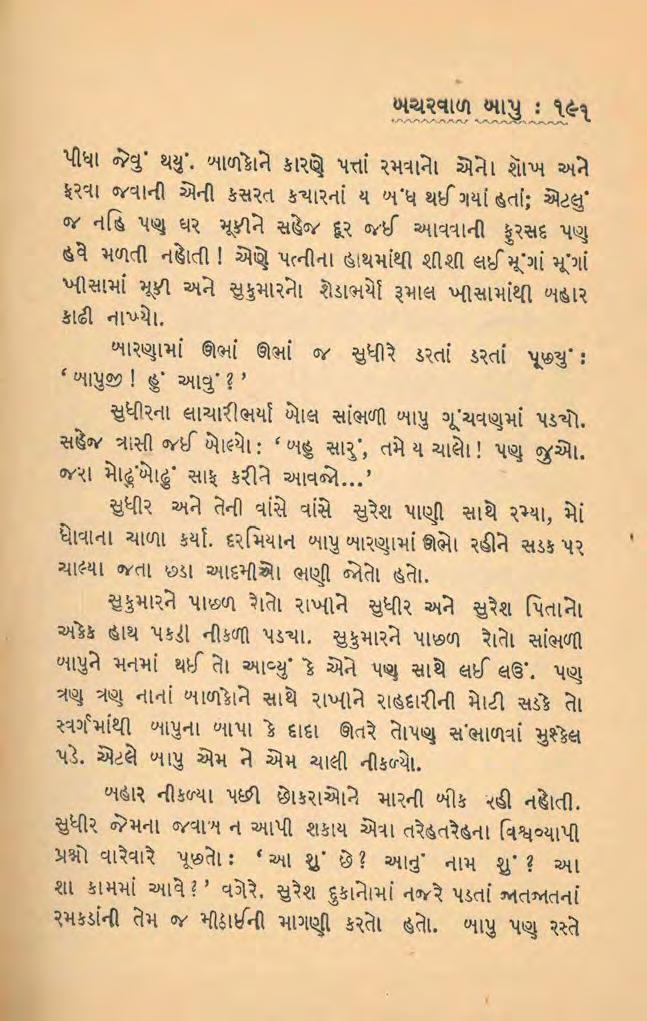 બચરવાળ બાપુ : ૧૯૧
પીધા જેવું થયું. બાળકોને કારણે પત્તાં રમવાનો એનો શૉખ અને
ફરવા જવાની એની કસરત ક્યારનાં ય બંધ થઈ ગયાં હતાં; એટલું
જ નહિ પણ ઘર મૂકીને સહેજ દૂર જઈ આવવાની ફુરસદ પણ
હવે મળતી નહોતી ! એણે પત્નીના હાથમાંથી શીશી લઈ મૂંગાં મૂંગાં
ખીસામાં મૂકી અને સુકુમારનો શેડાભર્યો રૂમાલ ખીસામાંથી બહાર
કાઢી નાખ્યો.
બારણામાં ઊભાં ઊભાં જ સુધીરે ડરતાં ડરતાં પૂછયું :
‘ બાપુજી ! હું આવું ? ’
સુધીરના લાચારીભર્યા બોલ સાંભળી બાપુ ગૂંચવણમાં પડ્યો.
સહેજ ત્રાસી જઈ બોલ્યો : ‘ બહુ સારું, તમે ય ચાલો ! પણ જુઓ.
જરા મોઢુંબોઢું સાફ કરીને આવજો...’
સુધીર અને તેની વાંસે વાંસે સુરેશ પાણી સાથે રમ્યા, મોં
ધોવાના ચાળા કર્યા. દરમિયાન બાપુ બારણામાં ઊભો રહીને સડક પર
ચાલ્યા જતા છડા આદમીઓ ભણી જોતો હતો.
સુકુમારને પાછળ રોતો રાખીને સુધીર અને સુરેશ પિતાનો
અકેક હાથ પકડી નીકળી પડ્યા. સુકુમારને પાછળ રોતો સાંભળી
બાપુને મનમાં થઈ તો આવ્યું કે એને પણ સાથે લઈ લઉં. પણ
ત્રણ ત્રણ નાનાં બાળકોને સાથે રાખીને રાહદારીની મોટી સડકે તો
સ્વર્ગમાંથી બાપુના બાપા કે દાદા ઊતરે તોપણ સંભાળવાં મુશ્કેલ
પડે. એટલે બાપુ એમ ને એમ ચાલી નીકળ્યો.
બહાર નીકળ્યા પછી છોકરાઓને મારની બીક રહી નહોતી.
સુધીર જેમના જવાબ ન આપી શકાય એવા તરેહતરેહના વિશ્વવ્યાપી
પ્રશ્નો વારેવારે પૂછતો : ‘ આ શું છે ? આનું નામ શું ? આ
શા કામમાં આવે ? ’ વગેરે. સુરેશ દુકાનોમાં નજરે પડતાં જાતજાતનાં
રમકડાંની તેમ જ મીઠાઈની માગણી કરતો હતો. બાપુ પણ રસ્તે